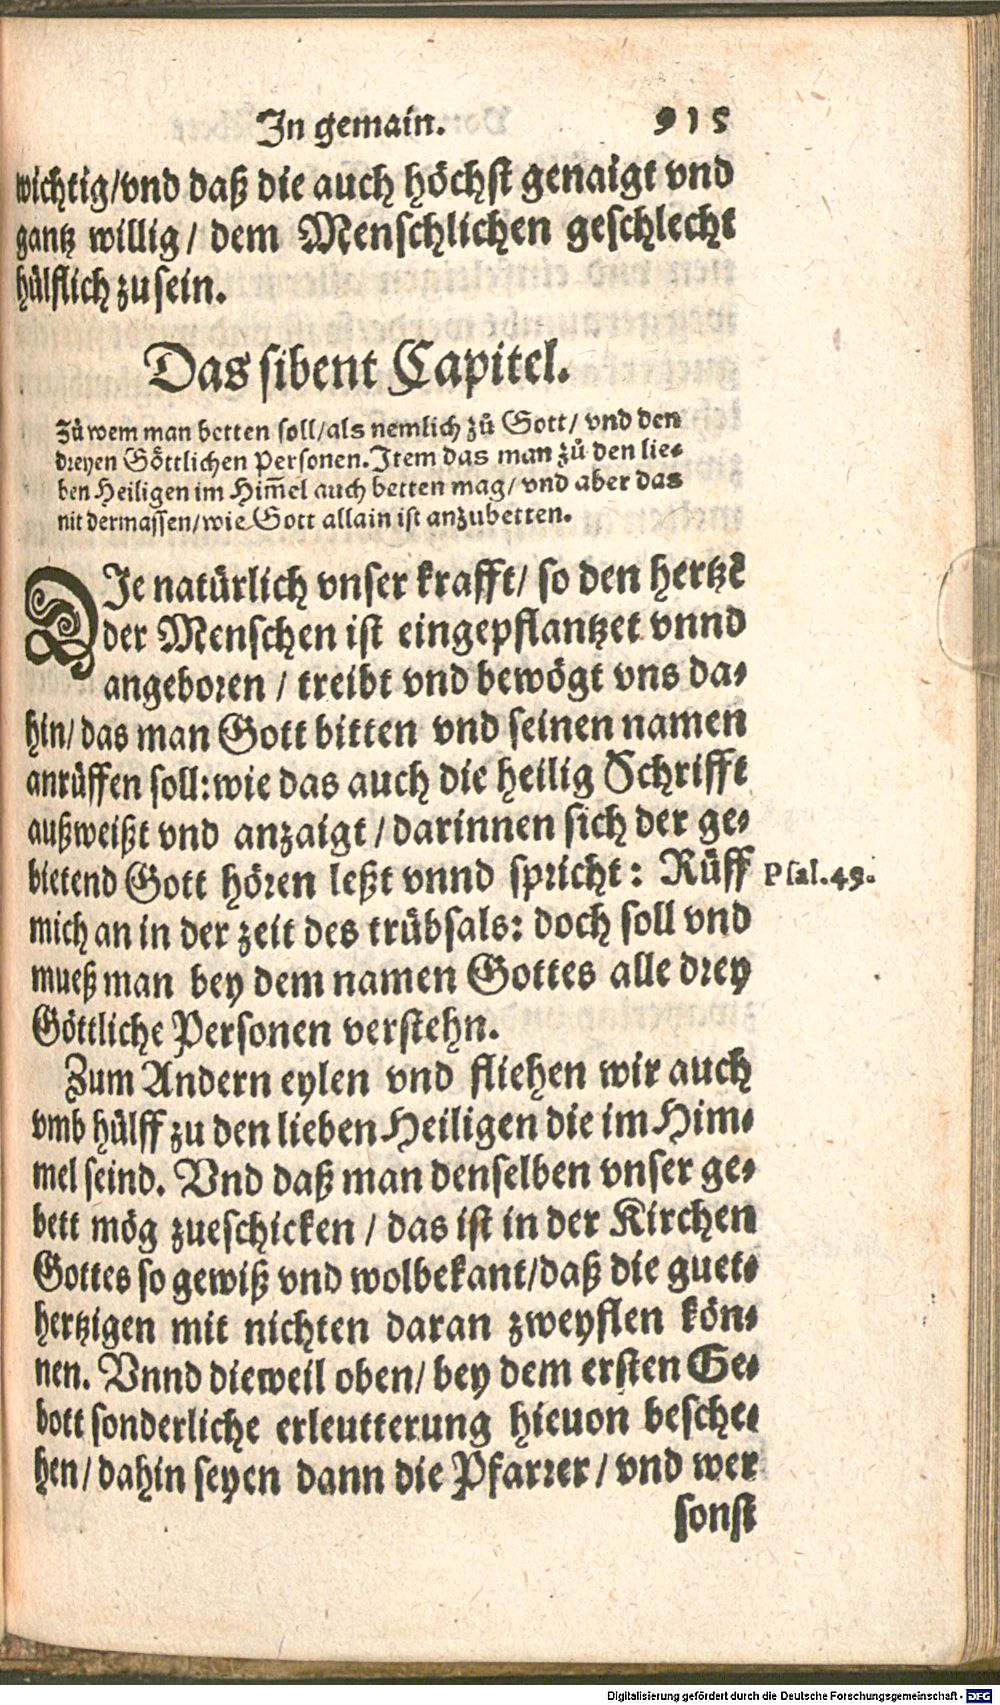 In gemain. 915
wichtig/vnd daß die auch höchst genaigt vnd
gantz willig/ dem Menschlichen geschlecht
hülflich zu sein.
Das sibent Capitel.
Zů wem man betten soll/als nemlich zů Gott/ vnd den
dreyen Göttlichen Personen. Item das man zů den lie-
ben Heiligen im Him̃el auch betten mag/ vnd aber das
nit dermassen/wie Gott allain ist anzubetten.
DIe natürlich vnser krafft/ so den hertzẽ
der Menschen ist eingepflantzet vnnd
angeboren / treibt vnd bewögt vns da-
hin/ das man Gott bitten vnd seinen namen
anrüffen soll: wie das auch die heilig Schrifft
außweißt vnd anzaigt / darinnen sich der ge-
bietend Gott hören leßt vnnd spricht: Rüff Psal.49.
mich an in der zeit des trübsals: doch soll vnd
mueß man bey dem namen Gottes alle drey
Göttliche Personen verstehn.
Zum Andern eylen vnd fliehen wir auch
vmb hülff zu den lieben Heiligen die im Him-
mel seind. Vnd daß man denselben vnser ge-
bett mög zueschicken / das ist in der Kirchen
Gottes so gewiß vnd wolbekant/daß die guet-
hertzigen mit nichten daran zweyflen kön-
nen. Vnnd dieweil oben/ bey dem ersten Ge-
bott sonderliche erleutterung hieuon besche-
hen/ dahin seyen dann die Pfarrer / vnd wer
sonst
Digitalisierung gefördert durch die Deutsche Forschungsgemeinschaft - DFG